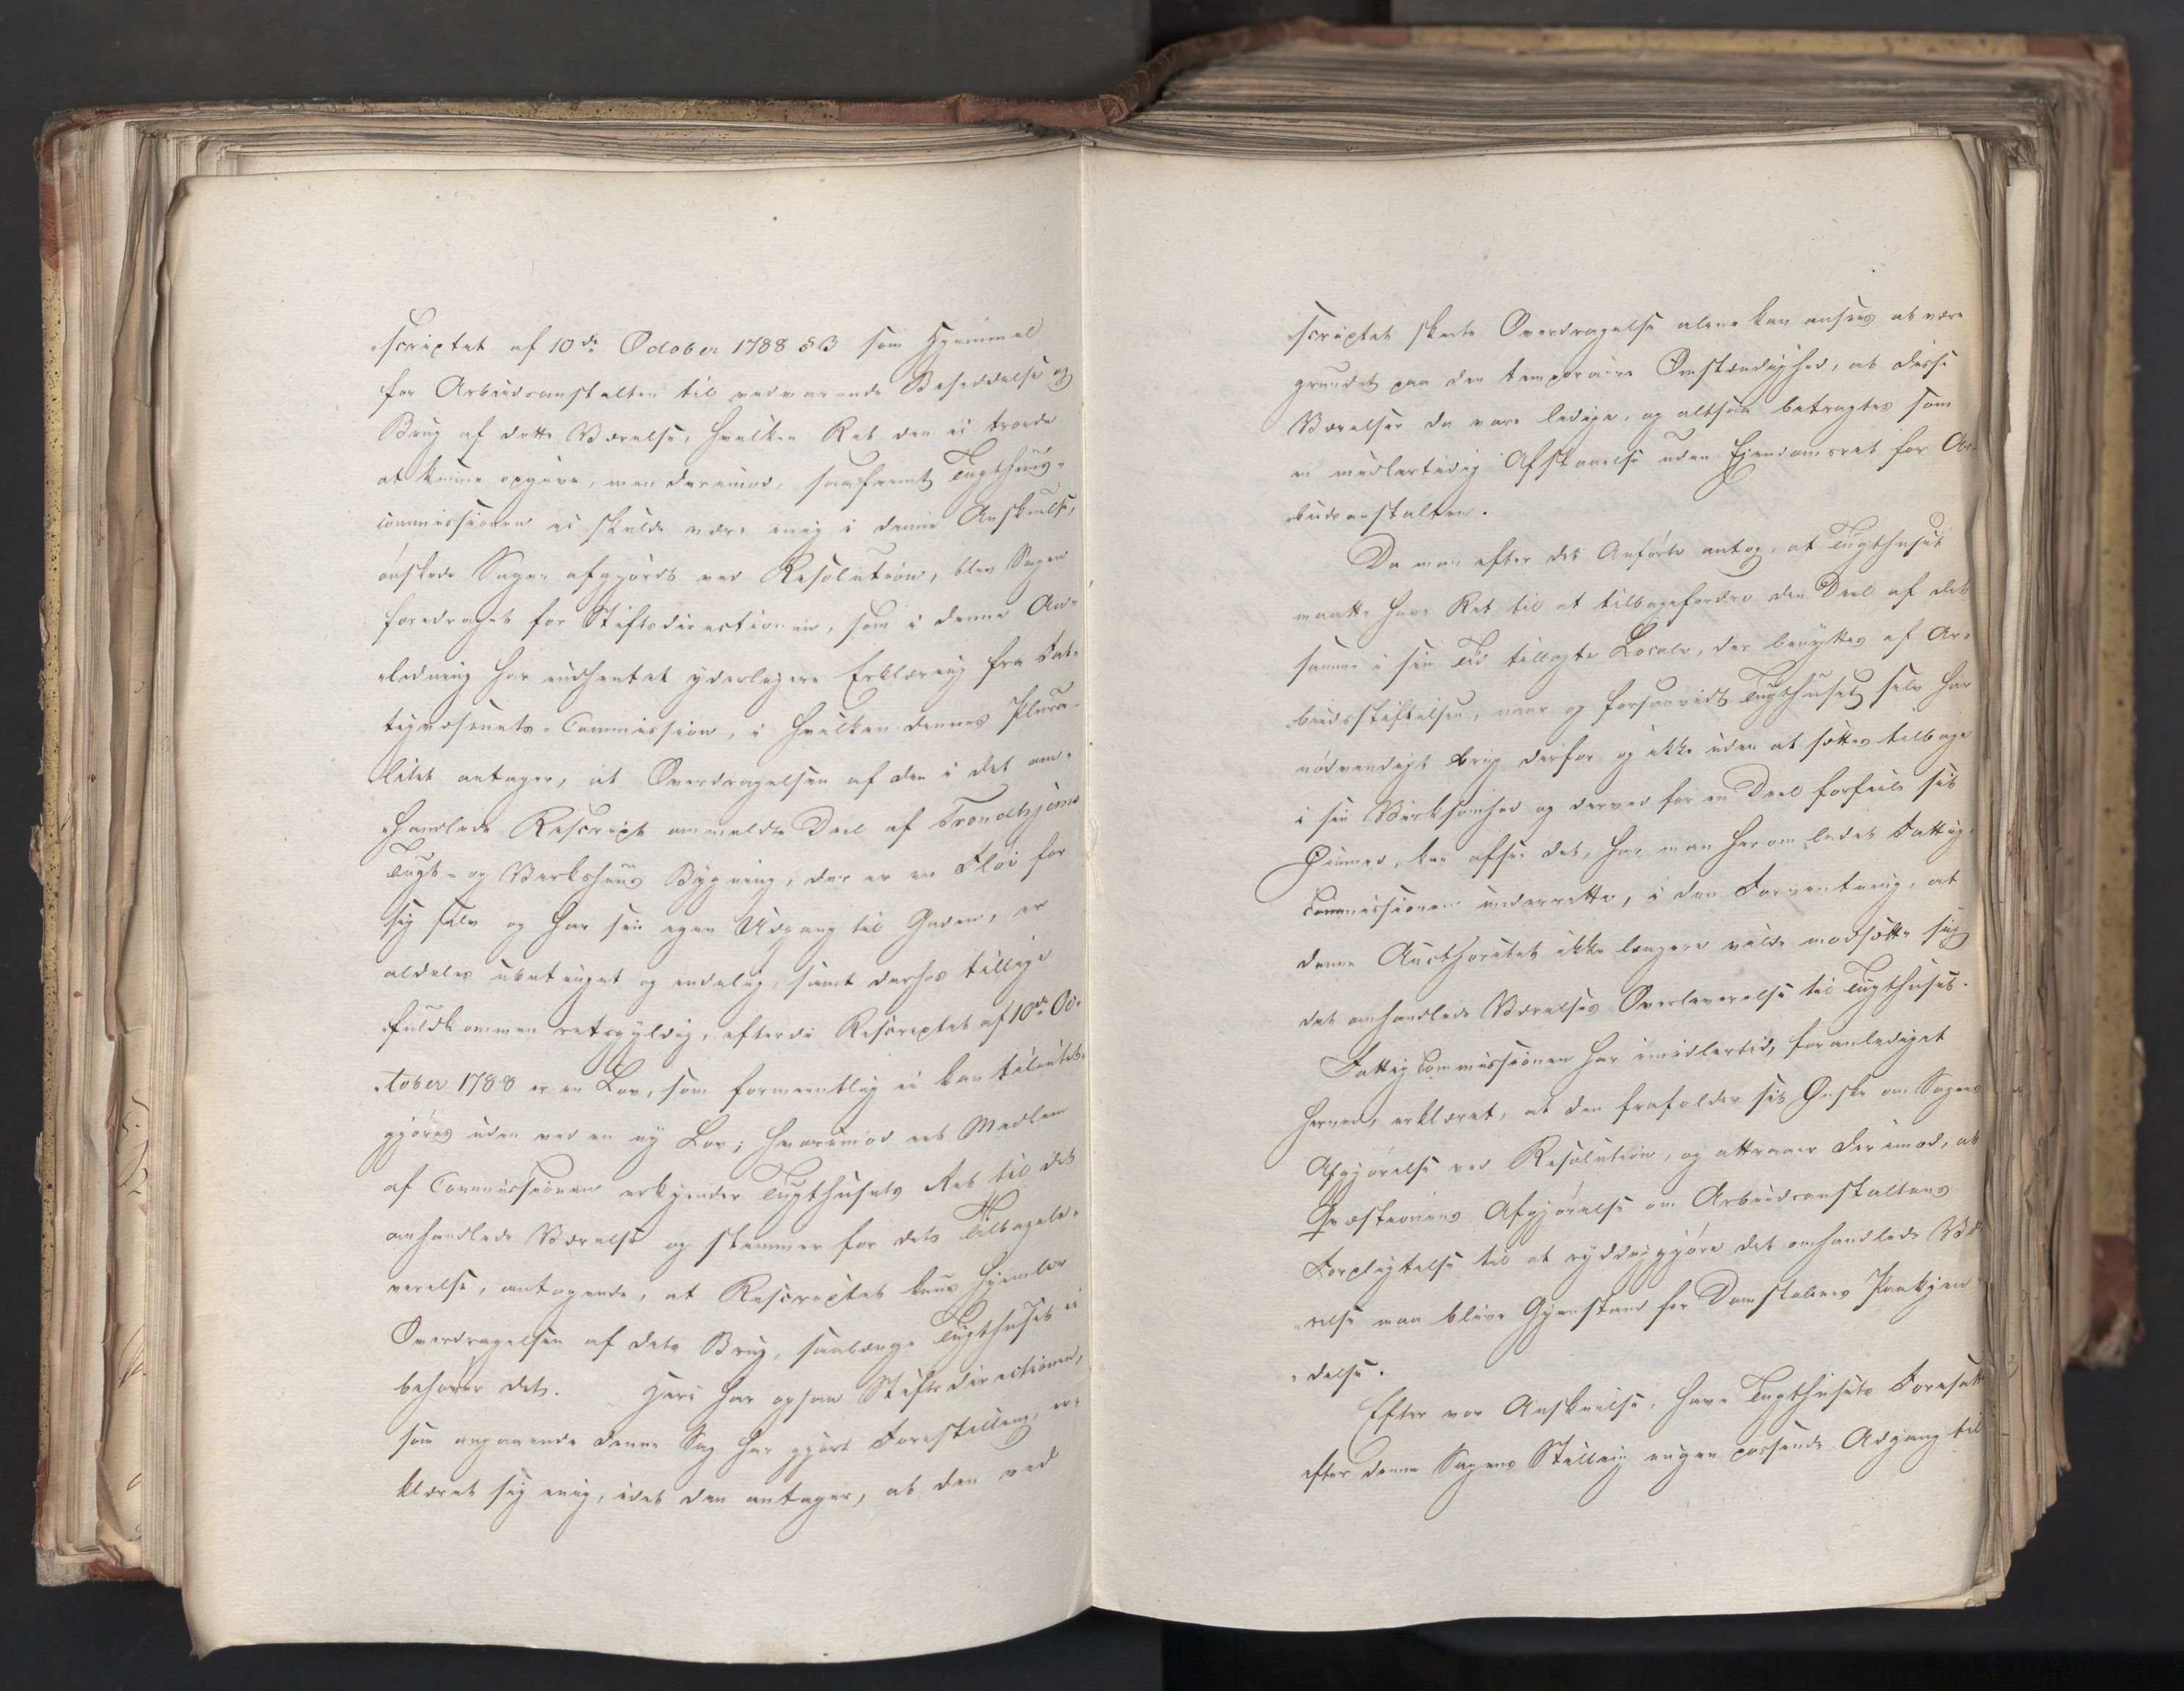 scriptet af 10de October 1788 § 3 som Hjemmel
for Arbeidsanstalten til vedvarende Besiddelse og
Brug af dette Værelse, hvilken Ret den ei troede
at kunne opgive, men derimod, saafremt Tugthuus-
commissionen ei skulde være enig i denne Anskuelse,
ønskede Sagen afgjordt ved Resolution, blev Sagen
foredraget for Stiftsdirectionen, som i denne An-
ledning har indhentet yderligere Erklæring fra Fat-
tigvæsenets-Commission, i hvilken dennes Plura-
litet antager, at Overdragelsen af den i det om-
handlede Rescript ommeldte Deel af Trondhjems
Tugt- og Verkshuus Bygning, der er en Fløi for
sig selv og har sin egen Udgang til Gaden, er
aldeles ubetinget og endelig, samt derhos tillige
fuldkommen retsgyldig, efterdi Rescriptet af 10de Oc-
tober 1788 er en Lov, som formeentlig ei kan tilintet-
gjøres uden ved en ny Lov; hvorimod eet Medlem
af Commissionen erkjender Tugthusets Ret til det
omhandlede Værelse og stemmer for dets Tilbagele-
verelse, antagende, at Rescriptet kuns hjemler
Overdragelsen af dets Brug, saalænge Tugthuset ei
behøver det. Heri har ogsaa Stiftsdirectionen,
som angaaende denne Sag har gjort Forestilling, er-
klæret sig enig, idet den antager, at den ved
scriptet skeete Overdragelse alene kan ansees at være
grundet paa den temporaire Omstændighed, at disse
Værelser da vare ledige, og altsaa betragtes som
en midlertidig Afstaaelse uden Eiendomsret for Ar-
beidsanstalten.
Da man efter det Anførte antog, at Tugthuset
maatte have Ret til at tilbagefordre den Deel af det
samme i sin Tid tillagte Locale, der benyttes af Ar-
beidsstiftelsen, naar og forsaavidt Tugthuset selv har
nødvendigt Brug derfor og ikke uden at sættes tilbage
i sin Virksomhed og derved for en Deel forfeile sit
Øiemed, kan afsee det, har man herom ladet Fattig-
Commissionen underrette, i den Forventning, at
denne Aucthoritet ikke længere vilde modsætte sig
det omhandlede Værelses Overleverelse til Tugthuset.
Fattigcommissionen har imidlertid, foranlediget
herved, erklæret, at den frafalder sit Ønske om Sagens
Afgjørelse ved Resolution, og attraaer derimod, at
Qvæstionens Afgjørelse om Arbeidsanstaltens
Forpligtelse til at ryddiggjøre det omhandlede Væ-
relse maa blive Gjenstand for Domstolenes Paakjen-
delse.
Efter vor Anskuelse, have Tugthusets Foresatte
efter denne Sagens Stilling ingen passende Adgang til